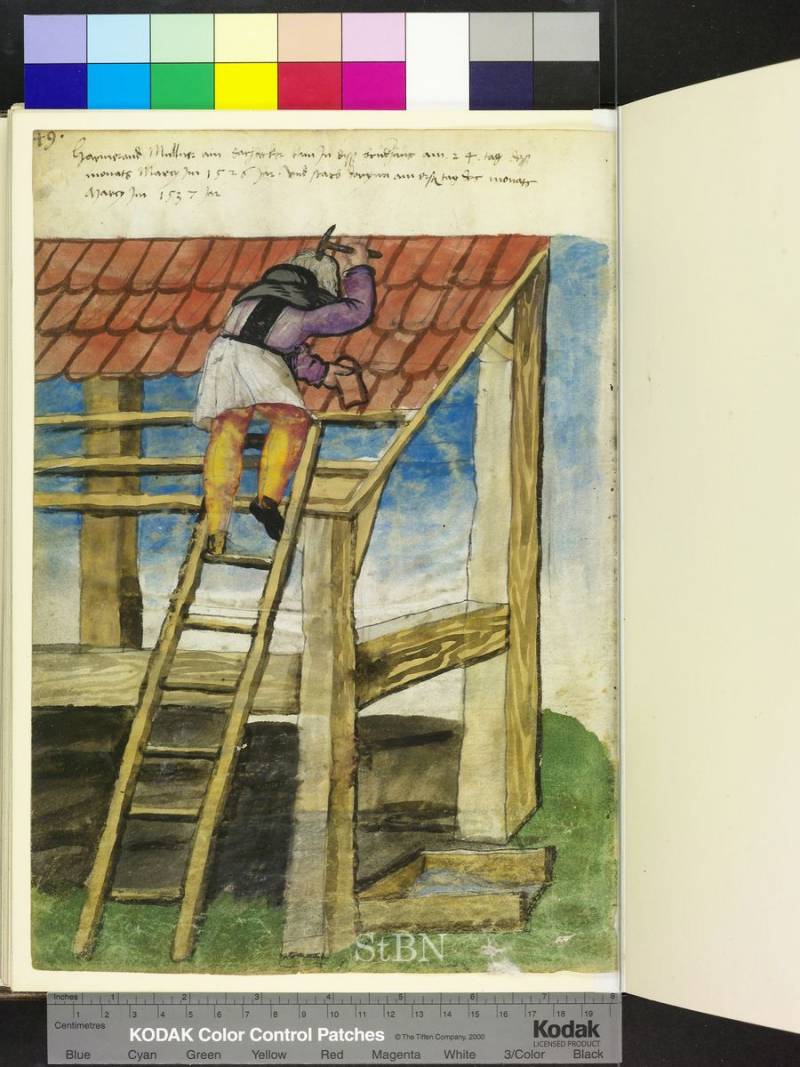 49.
Müllner ain kam In diße am .24. tag deß
monats Marcy Im 1526 Jar. Vnd starb am tag des monats
Marcy Im 1537 Jar
StBN
Inches 1 2 3 4 5 6 7 8
Centimetres 1 2 3 4 5 6 7 8 9 10 11 12 13 14 15 16 17 18 19
KODAK Color Control Patches © The Tiffen Company, 2000 Kodak
LICENSED PRODUCT
Blue Cyan Green Yellow Red Magenta White 3/Color Black